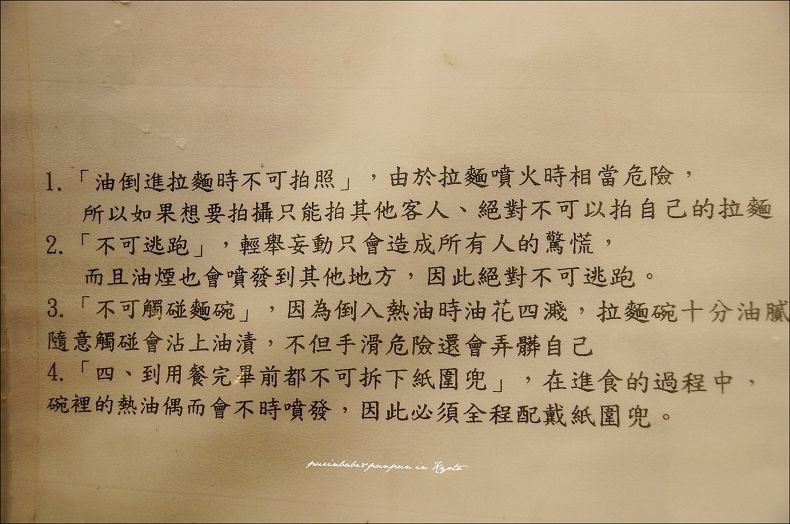 1.「油倒進拉麵時不可拍照」，由於拉麵噴火時相當危險，
所以如果想要拍攝只能拍其他客人、絕對不可以拍自己的拉麵
2.「不可逃跑」，輕舉妄動只會造成所有人的驚慌，
而且油煙也會噴發到其他地方，因此絕對不可逃跑。
3.「不可觸碰麵碗」，因為倒入熱油時油花四濺，拉麵碗十分油膩
隨意觸碰會沾上油漬，不但手滑危險還會弄髒自己
4.「四、到用餐完畢前都不可拆下紙圍兜」，在進食的過程中，
碗裡的熱油偶而會不時噴發，因此必須全程配戴紙圍兜。
purinbaby punpun in Kyoto